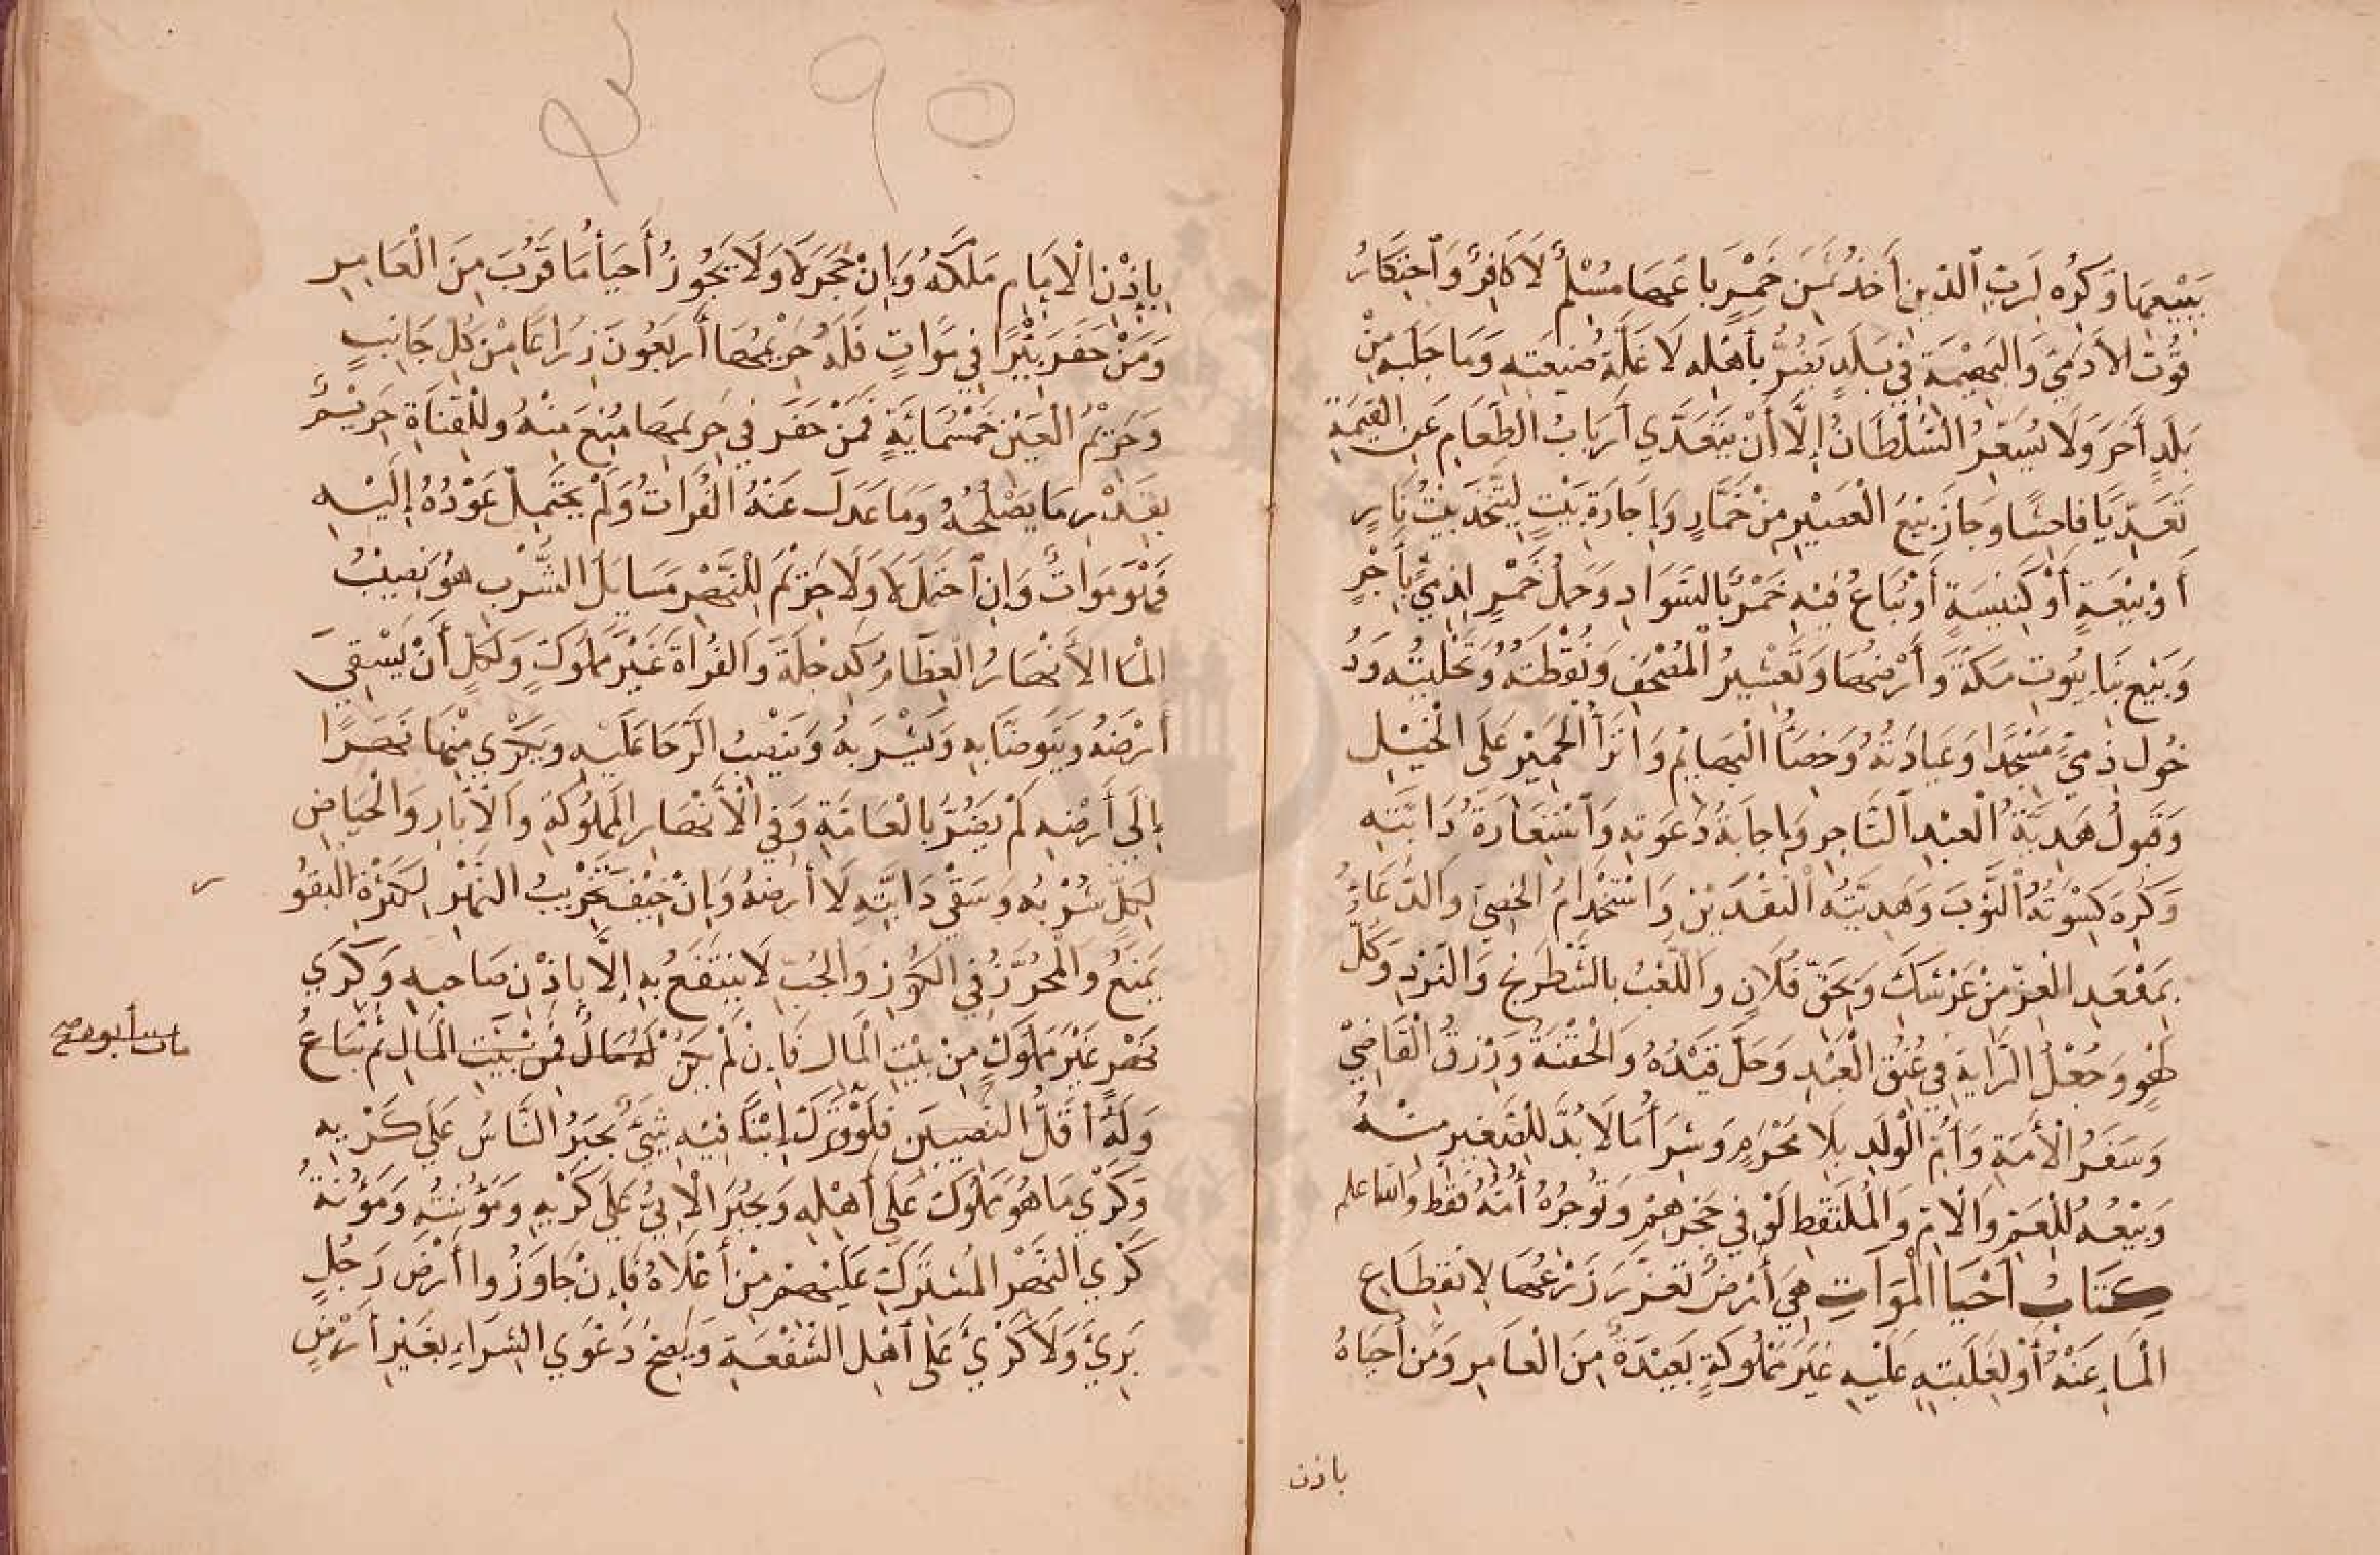 بِبَيْعِهَا وَكُرِهَ لِرَبِّ الدَّيْنِ أَخْذُ ثَمَنِ خَمْرٍ بَاعَهَا مُسْلِمٌ لَا كَافِرٌ وَاحْتِكَارُ
قُوتِ الْأَدَمِيِّ وَالْبَهِيمَةِ فِي بَلَدٍ يَضُرُّ بِأَهْلِهِ لَا غَلَّةِ ضَيْعَتِهِ وَمَا جَلَبَهُ مِنْ
بَلَدٍ أَخَرَ وَلَا يُسَعِّرُ السُّلْطَانُ إِلَّا أَنْ يَتَعَدَّي أَرْبَابُ الطَّعَامِ عَنِ الْقِيمَةِ
تَعَدِّيًا فَاحِشًا وَجَازَ بَيْعُ الْعَصِيرِ مِنْ خَمَّارٍ وَإِجَارَةِ بَيْتٍ لِيُتَّخَذَ بَيْتُ نَارٍ
أَوْ بِيْعَةٍ أَوْ كَنِيسَةٍ أَوْ يُبَاعُ فِيهِ خَمْرٌ بِالسَّوَادِ وَحَمْلُ خَمْرٍ لِذِمِّيٍّ بِأَجْرٍ
وَبَيْعِ بِنَاءِ بُيُوتِ مَكَّةَ وَأَرْضِهَا وَتَعْشِيرُ الْمُصْحَفِ وَنُقْطَتُهُ وَتَحْلِيَتُهُ وَدُ
خُولُ ذِمِّيٍّ مَسْجِدًا وَعِيَادَتُهُ وَخِصَاُ الْبَهَائِمِ وَانْزَاُ الْحَمِيرِ عَلَى الْخَيْلِ
وَقَبُولُ هَدِيَّةِ الْعَبْدِ التَّاجِرِ وَإِجَابَةُ دَعْوَتِهِ وَاسْتِعَارَةُ دَابَّتِهِ
وَكُرِهَ كِسْوَتُهُ الثَّوْبَ وَهَدِيَّتُهُ النَّقْدَيْنِ وَاسْتِخْدَامُ الْخَصِيِّ وَالدُّعَاءُ
بِمَقْعَدِ الْعِزِّ مِنْ عَرْشِكَ وَبِحَقِّ فُلَانٍ وَاللَّعْبُ بِالشَّطْرَنْجِ وَالنَّرْدِ وَكُلُّ
لَهْوٍ وَجُعْلُ الرَّايَةِ فِي عُنُقِ الْعَبْدِ وَحَلَّ قَيْدُهُ وَالْحُقْنَةُ وَرِزْقُ الْقَاضِي
وَسَفَرُ الْأَمَةِ وَأُمِّ الْوَلَدِ بِلَا مَحْرَمٍ وَشِرَاُ مَا لَا بُدَّ لِلصَّغِيرِ مِنْهُ
وَبَيْعُهُ لِلْعَمِّ وَالْأُمِّ وَالْمُلْتَقِطِ لَوْ فِي حَجْرِهِمْ وَتُوجِرُهُ أُمُّهُ فَقَطْ وَاللهُ اعلم
كِتَابُ اَحْيَا الْمَوَاتِ هِيَ أَرْضٌ تَعَذَّرَ زَرْعُهَا لِانْقِطَاعِ
الْمَاءِ عَنْهُ أَوْ لِغَلَبَتِهِ عَلَيْهِ غَيْرَ مَمْلُوكَةٍ بَعِيدَةٌ مِنَ الْعَامِرِ وَمَنْ أَحْيَاهُ
باذن
٩٠
بِإِذْنِ الْإِمَامِ مَلَكَهُ وَإِنْ حَجَّرَ لَا وَلَا يَجُوزُ أَحْيَاُ مَا قَرُبَ مِنَ الْعَامِرِ
وَمَنْ حَفَرَ بِئْرًا فِي مَوَاتٍ فَلَهُ حَرِيمُهَا أَرْبَعُونَ ذِرَاعًا مِنْ كُلِّ جَانِبٍ
وَحَرِيمُ الْعَيْنِ خَمْسُمِائَةٍ فَمَنْ حَفَرَ فِي حَرِيمِهَا مُنِعَ مِنْهُ وَلِلْقَنَاةِ حَرِيمٌ
بِقَدْرِ مَا يُصْلِحُهُ وَمَا عَدَلَ عَنْهُ الْفُرَاتُ وَلَمْ يَحْتَمِلْ عَوْدُهُ إِلَيْهِ
فَهُوَ مَوَاتٌ وَإِنِ احْتَمَلَ لَا وَلَا حَرِيمَ لِلنَّهْرِ مَسَايِلَ الشُّرْبِ هُوَ نَصِيبُ
الْمَا الأَنْهَارُ الْعِظَامُ كَدِجْلَةَ وَالْفُرَاةَ غَيْرَ مَمْلُوكٍ وَلِكُلٍّ أَنْ يَسْقِيَ
أَرْضَهُ وَيَتَوَضَّا بِهِ وَيَشْرَبَهُ وَيَنْصِبُ الرَّحَا عَلَيْهِ وَيَكْرِي مِنْهَا نَهَرًا
إِلَي أَرْضِهِ لَمْ يَضُرَّ بِالْعَامَّةِ وَفِي الْأَنْهَارِ الْمَمْلُوكَةِ وَالْآبَارِ وَالْحِيَاضِ
لِكُلٍّ شُرْبُهُ وَسَقْيُ دَابَّتِهِ لَا أَرْضُهُ وَإِنْ خِيفَ تَخْرِيبُ النَّهْرِ لِكَثْرَةِ الْبَقُو
يَمْنَعُ وَالْمُحَرَّزُ فِي الْكُوزِ وَالْجُبِّ لَا يَنْتَفِعُ بِهِ إِلَّا بِإِذْنِ صَاحِبِهِ وَكَرْي
نَهْرٍ غَيْرَ مَمْلُوكٍ مِنْ بَيْتِ الْمَالِ فَإِنْ لَمْ يَكُنْ بَيْتِ الْمَالِ ثُمَّ يُبَاعُ
وَلَهُ أَقَلُّ النَّصِيبَيْنِ فَلَوْ تَرَكَ ابْنًا فِيهِ شَيٌّ يُجْبَرُ النَّاسُ عَلَي كَرْيِهِ
وَكَرْي مَا هُوَ مَمْلُوكَ عَلَي أَهْلِهِ وَيُجْبَرُ الْابِيُّ عَلَي كَرْيِهِ وَمَؤُنَتُهُ وَمَؤُنَةُ
كَرْيِ النَّهْرِ الْمُشْتَرَكِ عَلَيْهِمْ مِنْ أَعْلَاهُ فَإِنْ جَاوَزُوا أَرْضَ رَجُلٍ
بَرِيَ وَلَا كَرْيَ عَلَى أَهْلِ الشَّفَعَةِ وَيَصِحُّ دَعْوَي الشِّرَاءِ بِغَيْرِ أَرْضٍ